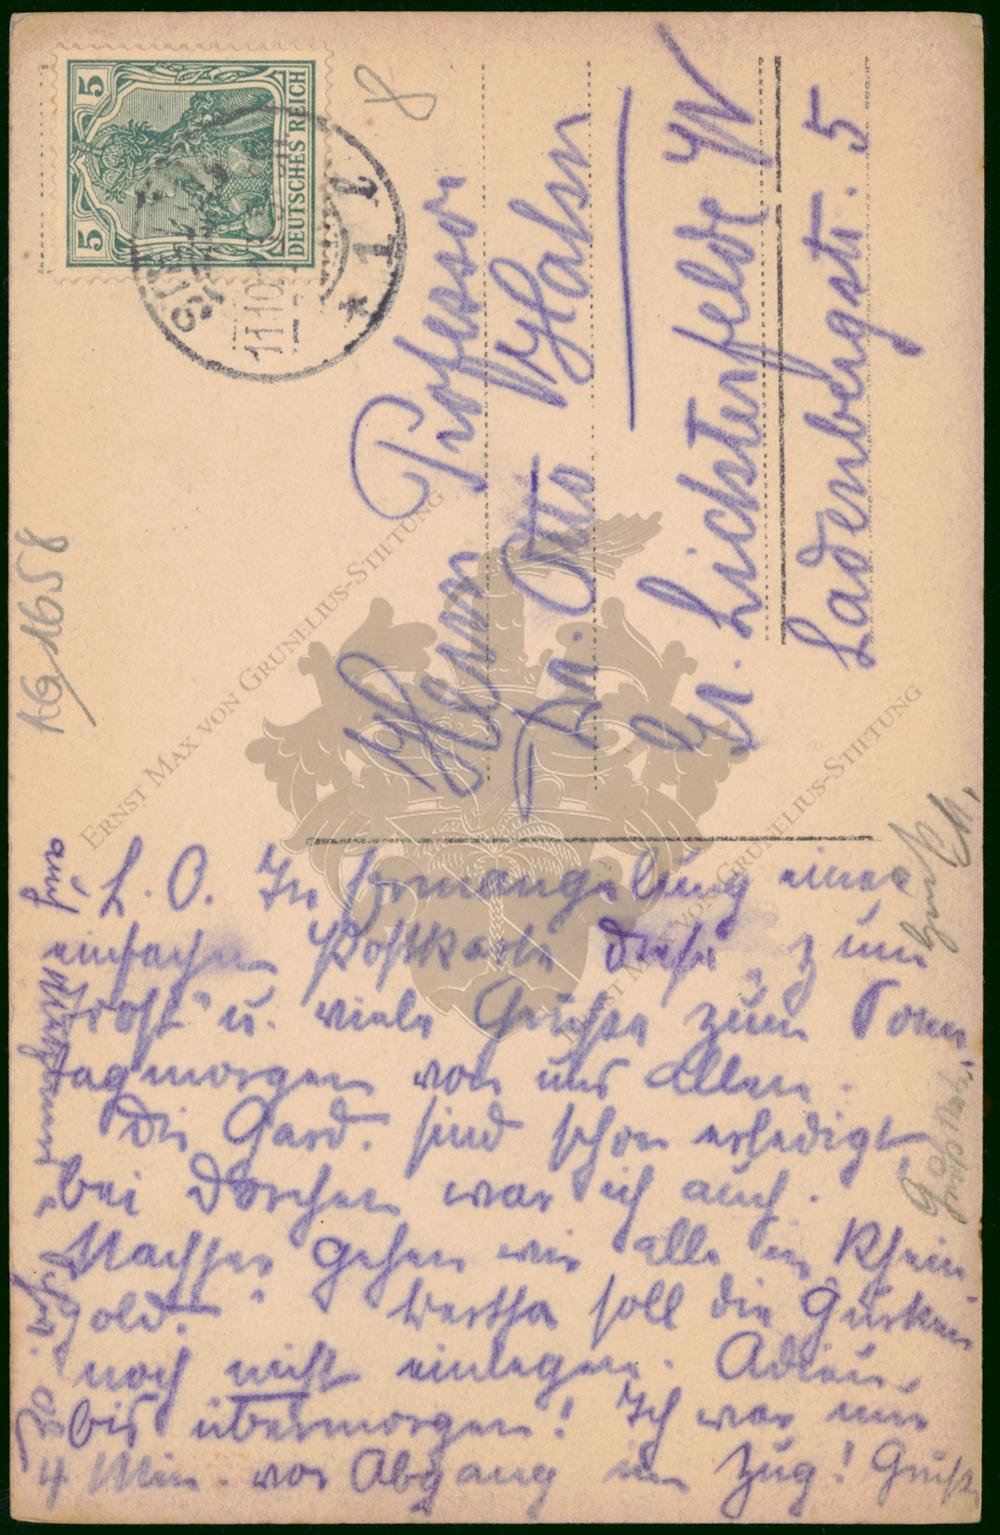 5
DEUTSCHES REICH
5
11.10
* 1 l
8
16/1658
Herrn Professor
Dr. Otto
Gr. Lichterfelde W
Ladenbergstr. 5
L. O. In Ermangelung einer
einfachen Postkarte diese „zum
Trost“ u. viele Grüße zum Sonn
tagmorgen von uns allen.
Die Gard. sind schon erledigt,
bei Dorchen war ich auch.
Nachher gehen wir alle in Rhein
gold. Bertha soll die Gurken
noch nicht einlegen. Adieu,
bis übermorgen! Ich war nur
4 Min. vor Abgang im Zug! Gruß
ERNST MAX VON GRUNELIUS-STIFTUNG
ERNST MAX VON GRUNELIUS-STIFTUNG